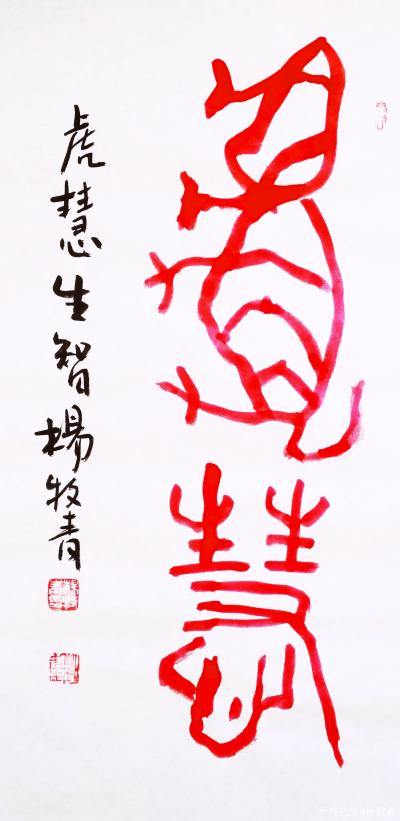 虎慧
虎慧生智楊牧青